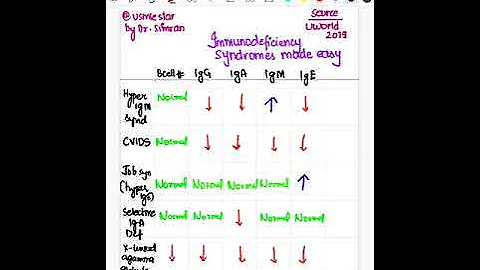 @ usmle star
by Dr. Simran
Source
Uworld
2019
Immunodeficiency
Syndromes made easy
Bcell# IgG IgA IgM IgE
Hyper IgM synd Normal ↓ ↓ ↑ ↓
CVIDS Normal ↓ ↓ ↓ ↓
Job syn (hyper IgE) Normal Normal Normal Normal ↑
Selective IgA Def Normal Normal ↓ Normal Normal
X-linked agamma ↓ ↓ ↓ ↓ ↓